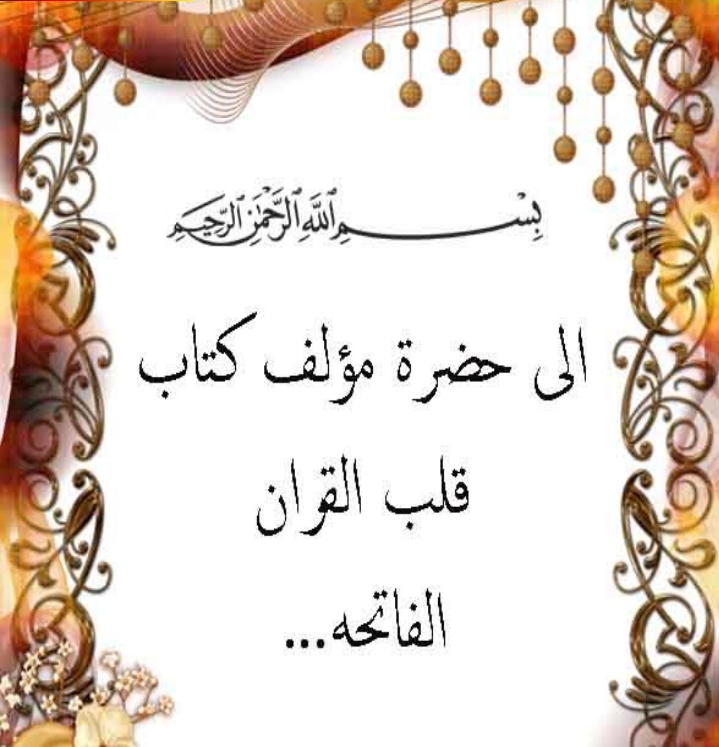 بِسْــــمِ اللَّهِ الرَّحْمَٰنِ الرَّحِيمِ
الى حضرة مؤلف كتاب
قلب القران
الفاتحه...